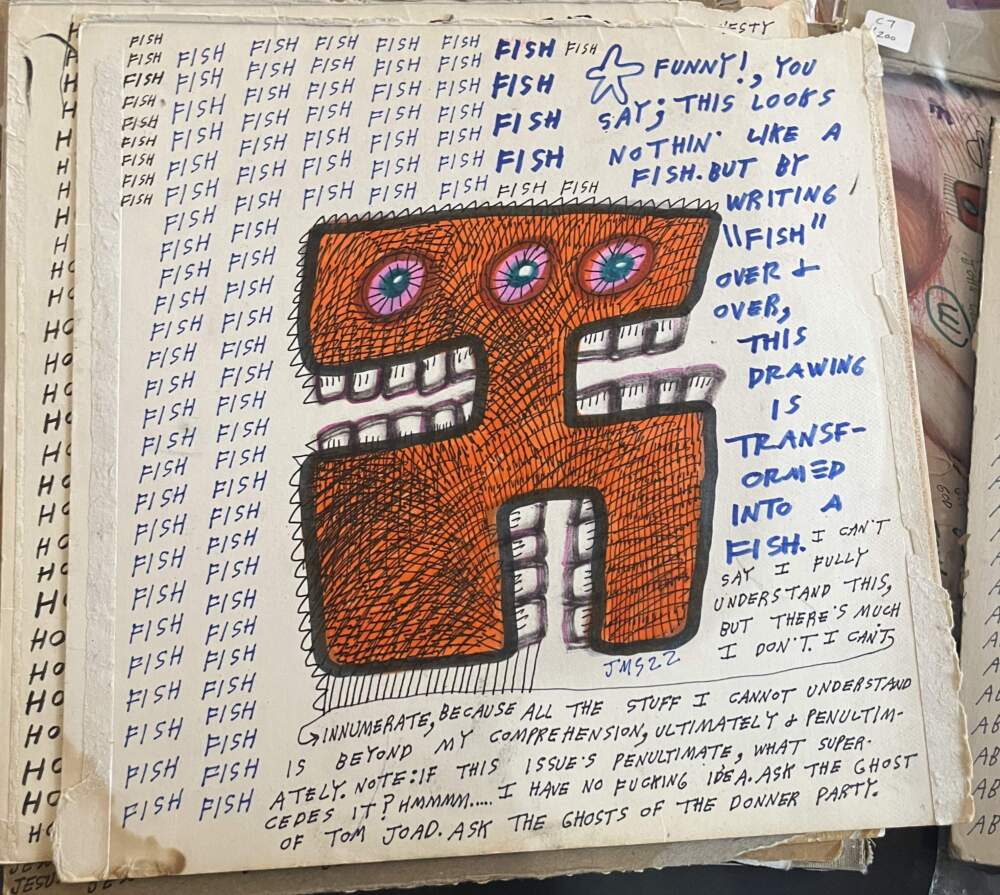 FISH
FISH FISH FISH FISH FISH FISH FISH FISH
FISH FISH FISH FISH FISH FISH FISH
FISH FISH FISH FISH FISH FISH
FISH FISH FISH FISH FISH FISH FISH
FISH FISH FISH FISH FISH FISH
FISH FISH FISH FISH FISH FISH FISH
FISH
FISH FISH FISH FISH FISH FISH FISH
FUNNY!, YOU
SAY; THIS LOOKS
NOTHIN' LIKE A
FISH. BUT BY
WRITING
"FISH"
OVER &
OVER,
THIS
DRAWING
IS
TRANSF-
ORMED
INTO A
FISH. I CAN'T
SAY I FULLY
UNDERSTAND THIS,
BUT THERE'S MUCH
I DON'T. I CAN'T
FISH FISH
FISH FISH
FISH FISH
FISH FISH
FISH FISH
FISH FISH
FISH FISH
FISH FISH
FISH FISH
FISH FISH
FISH FISH
FISH FISH
FISH FISH
FISH FISH
FISH FISH
FISH FISH
FISH FISH
FISH FISH
FISH FISH
JMS22
INNUMERATE, BECAUSE ALL THE STUFF I CANNOT UNDERSTAND
IS BEYOND MY COMPREHENSION, ULTIMATELY & PENULTIM-
ATELY. NOTE: IF THIS ISSUE'S PENULTIMATE, WHAT SUPER-
CEDES IT? HMMMM..... I HAVE NO FUCKING IDEA. ASK THE GHOST
OF TOM JOAD. ASK THE GHOSTS OF THE DONNER PARTY.
C7
$200